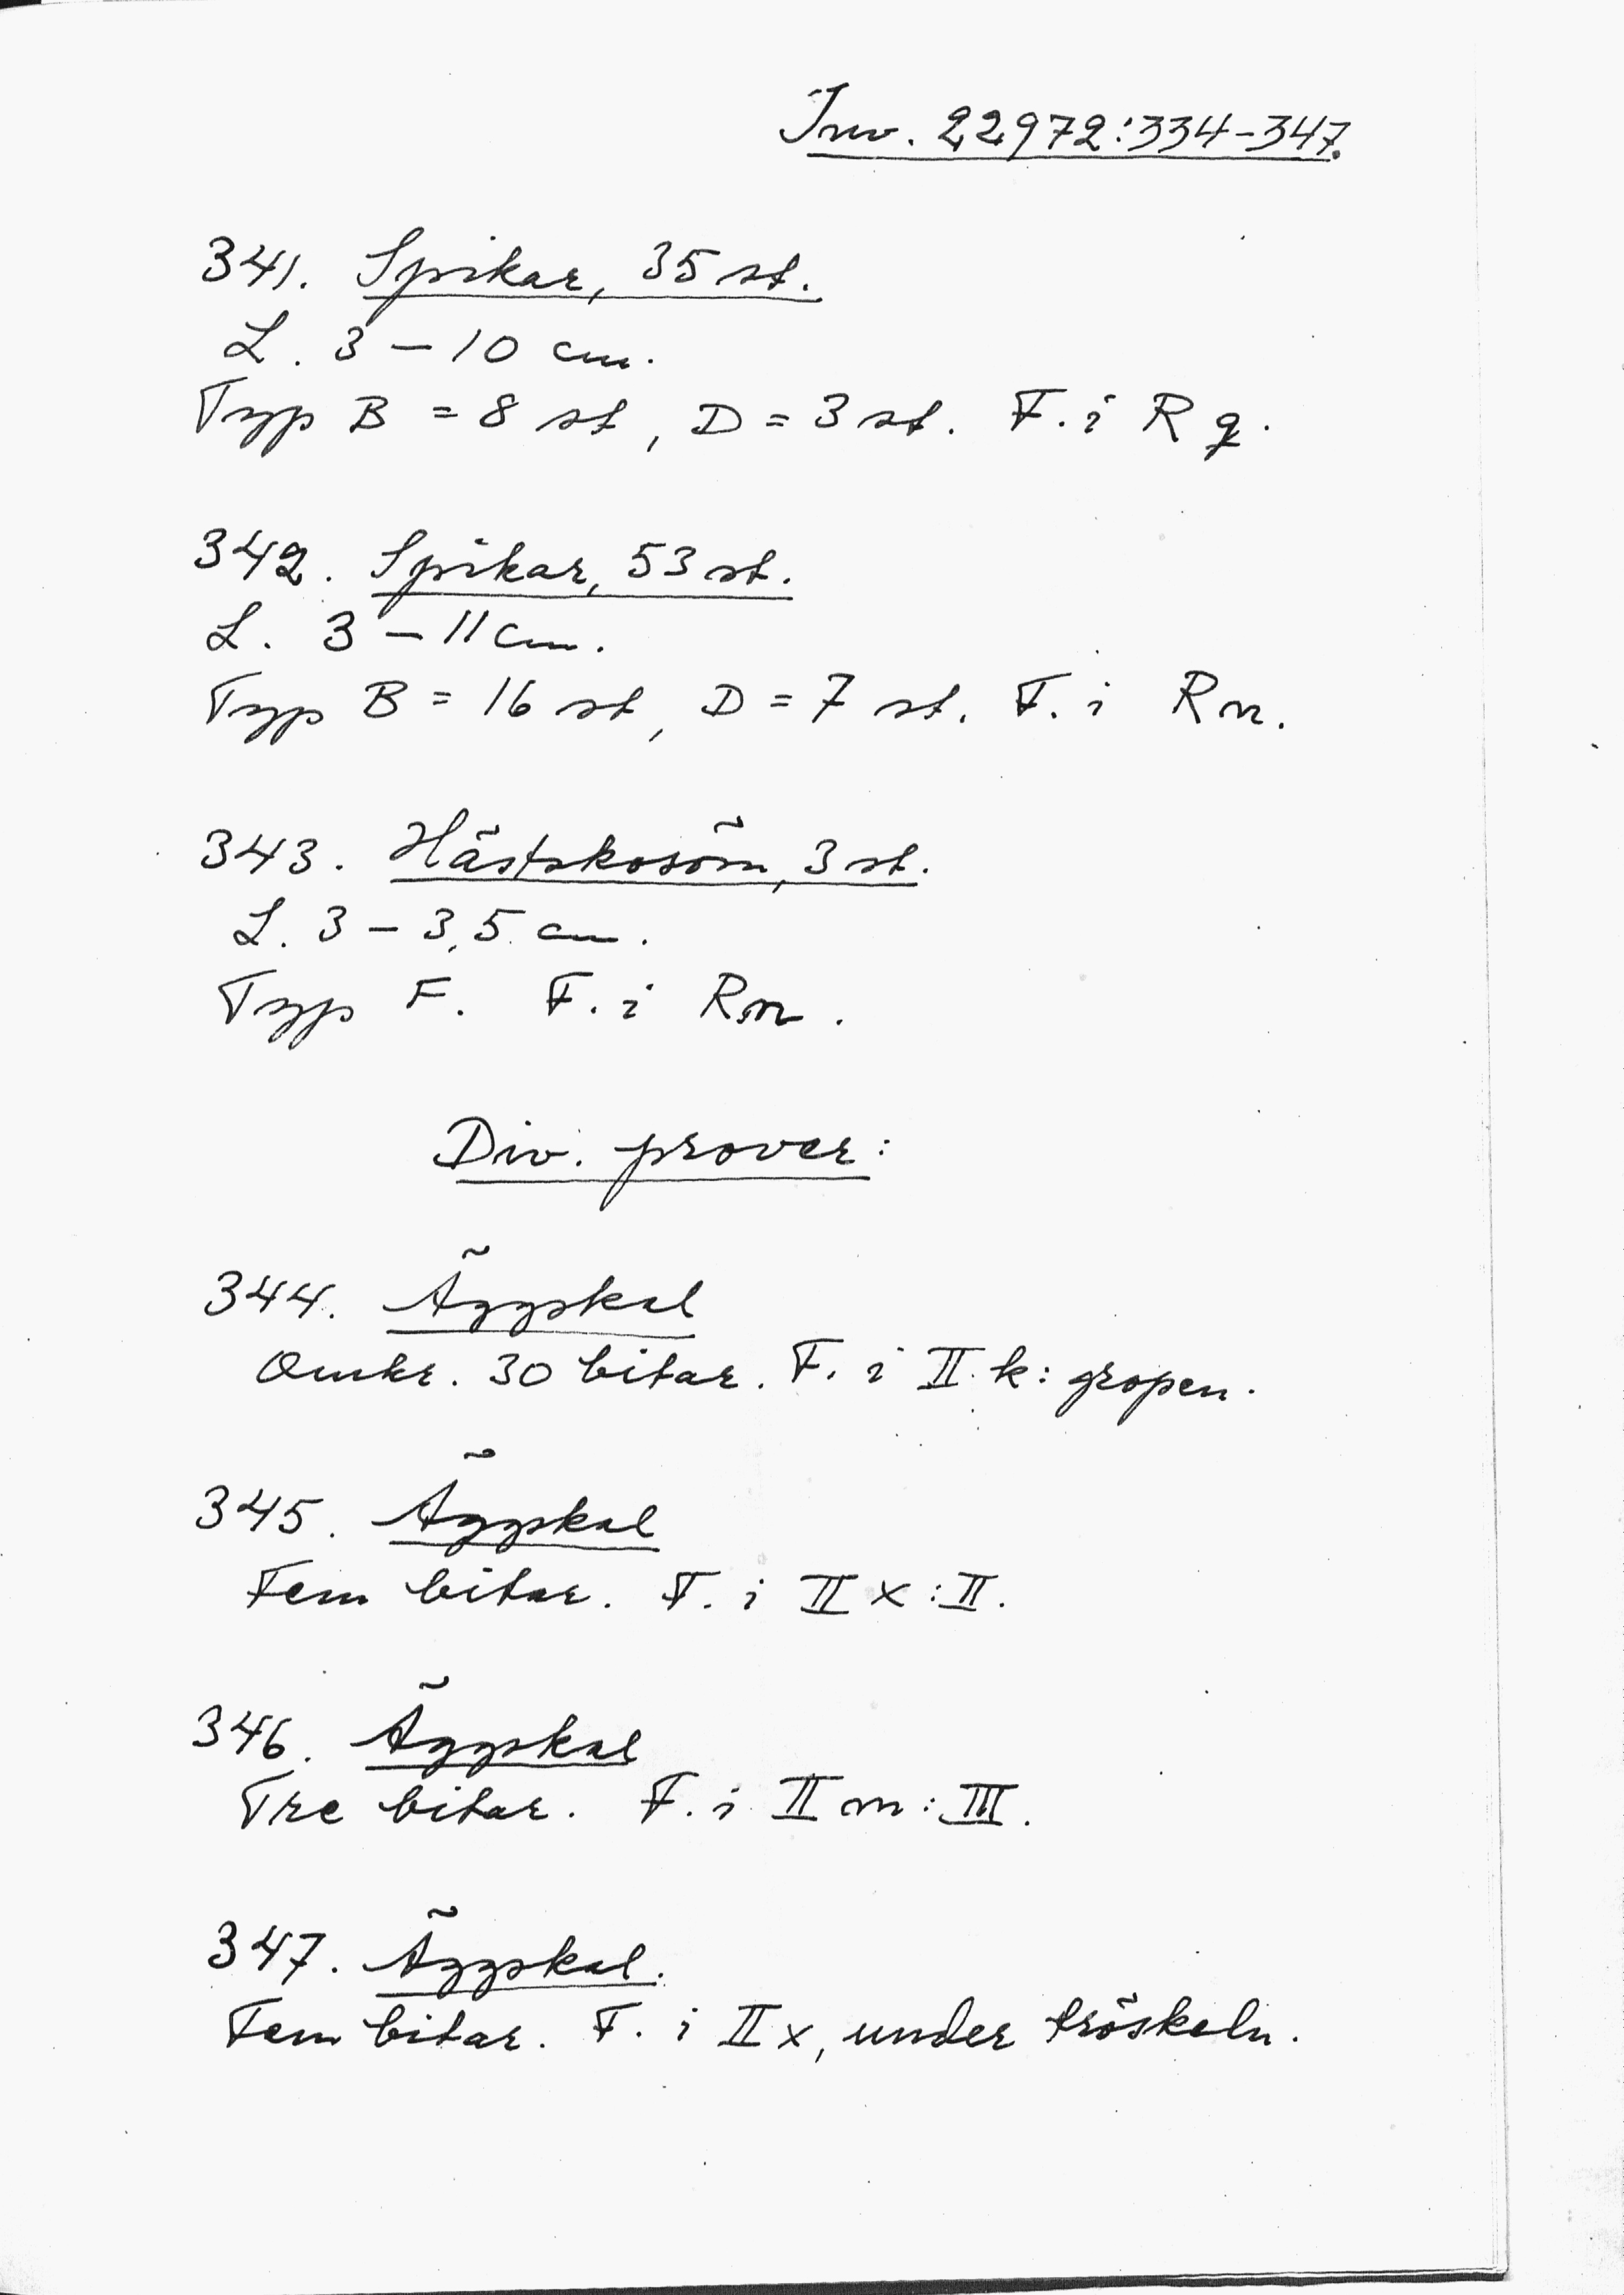 Inv. 22972:334-347.
341. Spikar, 35 st.
L. 3 – 10 cm.
Typ B = 8 st, D = 3 st. F. i R q.
342. Spikar, 53 st.
L. 3 – 11 cm.
Typ B = 16 st, D = 7 st. F. i Rn.
343. Hästskosöm, 3 st.
L. 3 – 3,5 cm.
Typ F. F. i Rn.
Div. prover:
344. Äggskal
Omkr. 30 bitar. F. i II k: gropen.
345. Äggskal
Fem bitar. F. i II x : II.
346. Äggskal
Tre bitar. F. i II m : III.
347. Äggskal.
Fem bitar. F. i II x, under tröskeln.